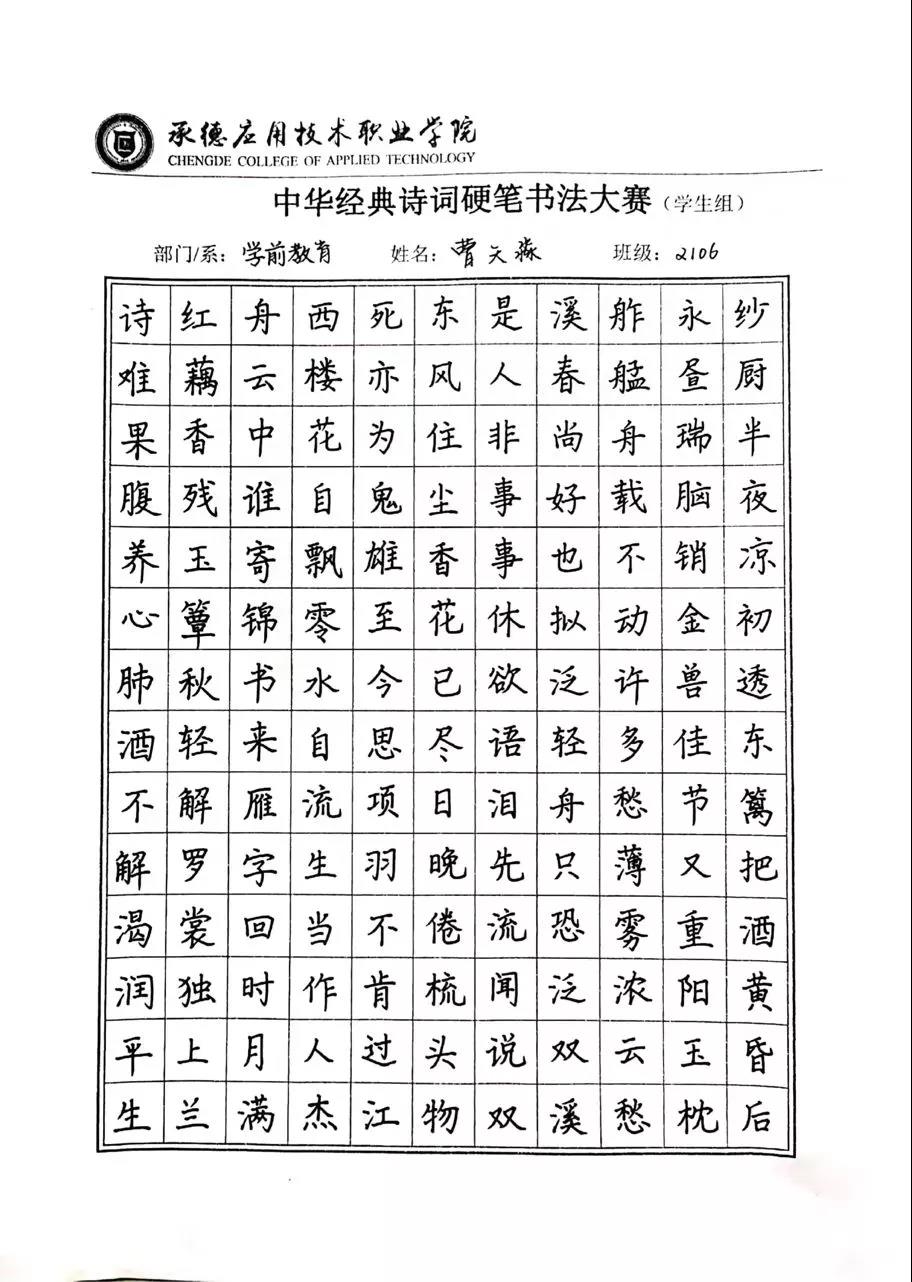 承德应用技术职业学院
CHENGDE COLLEGE OF APPLIED TECHNOLOGY
中华经典诗词硬笔书法大赛（学生组）
部门/系：学前教育 姓名：曹天淼 班级：2106
诗难果腹养心肺酒不解渴润平生
红藕香残玉簟秋轻解罗裳独上兰
舟云中谁寄锦书来雁字回时月满
西楼花自飘零水自流生当作人杰
死亦为鬼雄至今思项羽不肯过江
东风住尘香花已尽日晚倦梳头物
是人非事事休欲语泪先流闻说双
溪春尚好也拟泛轻舟只恐泛双溪
舴艋舟载不动许多愁薄雾浓云愁
永昼瑞脑销金兽佳节又重阳玉枕
纱厨半夜凉初透东篱把酒黄昏后